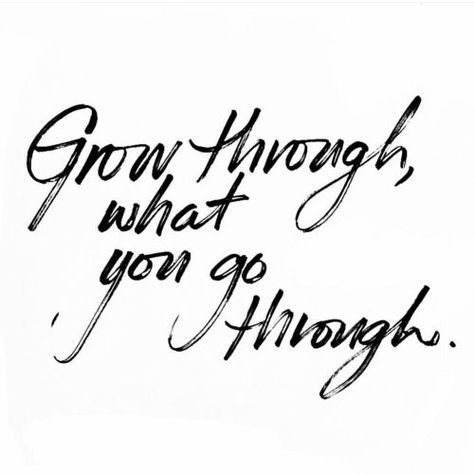 Grow through,
what
you go
through.